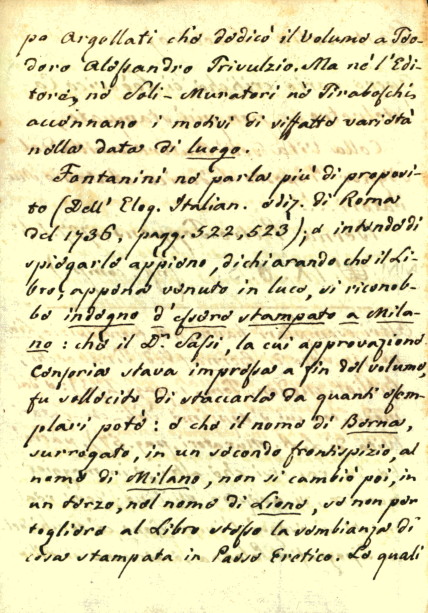 po Argellati che dedicò il volume a Teo-
doro Alessandro Trivulzio. Ma nè l'Edi-
tore, nè Soli-Muratori nè Tiraboschi,
accennano i motivi di siffatta varietà
nella data di luogo.
Fontanini ne parla più di proposi-
to (Dell' Eloq. Italian. ediz. di Roma
del 1736, pagg. 522, 523); e intende di
spiegarla appieno, dichiarando che il Li-
bro, appena venuto in luce, si riconob-
be indegno d'essere stampato a Mila-
no: che il Dr. Sassi, la cui approvazione
Censoria stava impressa a fin del volume,
fu sollecito di staccarla da quanti esem-
plari potè: e che il nome di Berna,
surrogato, in un secondo frontispizio, al
nome di Milano, non si cambiò poi, in
un terzo, nel nome di Lione, se non per
togliere al Libro stesso la sembianza di
cosa stampata in Paese Eretico. Le quali